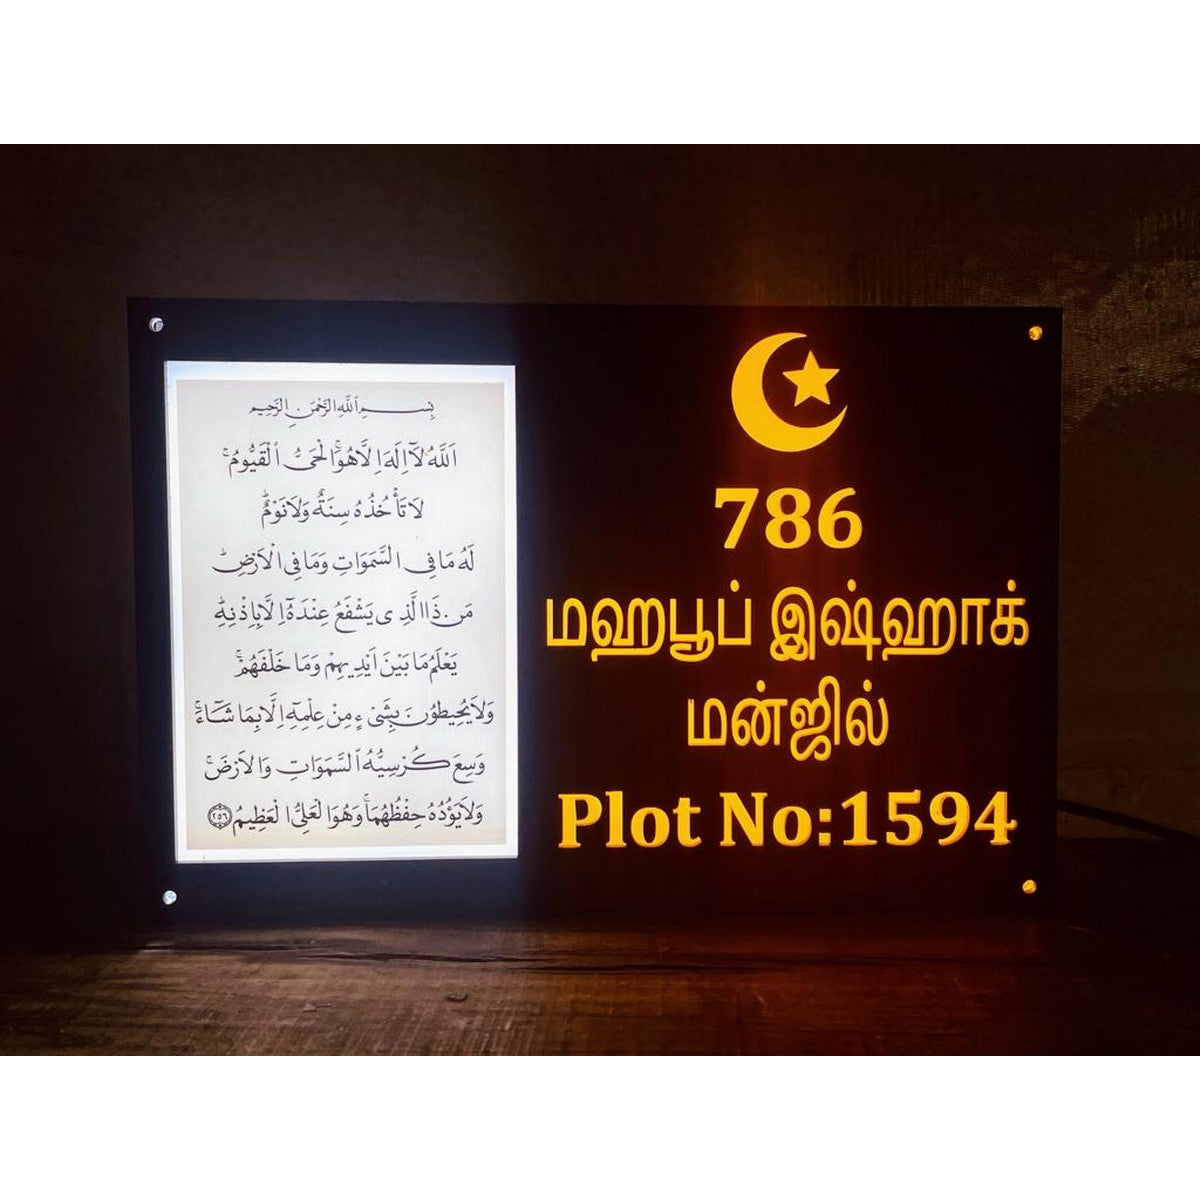 بِسْمِ اللَّهِ الرَّحْمَنِ الرَّحِيمِ
اَللَّهُ لَآ اِلَهَ اِلَّا هُوَ الْحَىُّ الْقَيُّومُ ۚ
لَا تَأْخُذُهُ سِنَةٌ وَلَا نَوْمٌ ۗ
لَهُ مَا فِى السَّمَوَاتِ وَمَا فِى الْاَرْضِ ۗ
مَنْ ذَا الَّذِى يَشْفَعُ عِنْدَهُ اِلَّا بِاِذْنِهِ ۗ
يَعْلَمُ مَا بَيْنَ اَيْدِيهِمْ وَمَا خَلْفَهُمْ ۚ
وَلَا يُحِيطُونَ بِشَىْءٍ مِنْ عِلْمِهِ اِلَّا بِمَا شَآءَ ۚ
وَسِعَ كُرْسِيُّهُ السَّمَوَاتِ وَالْاَرْضَ ۚ
وَلَا يَؤُدُهُ حِفْظُهُمَا ۚ وَهُوَ الْعَلِىُّ الْعَظِيمُ ٢٥٦
786
மஹபூப் இஷ்ஹாக்
மன்ஜில்
Plot No:1594